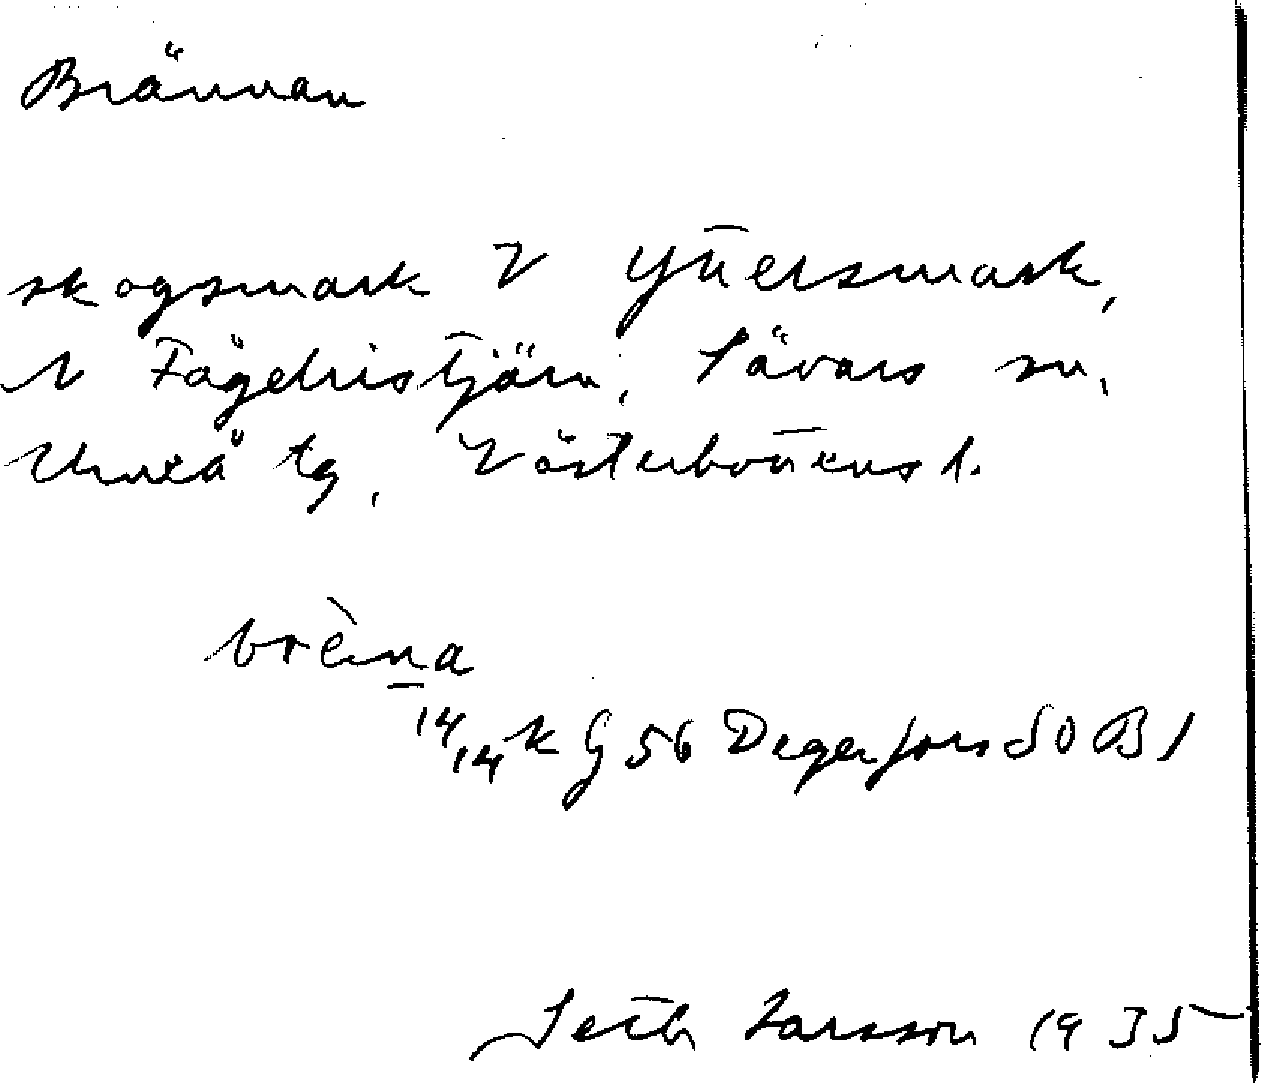 Brännan
skogsmark V Yn̄ersmark,
N Fågelristjärn, Sävars sn,
Umeå tg, Västerbon̄ens l.
brèna
14/14 k G 56 Degerfors SO B I
Seth Larsson 1935